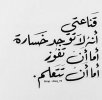 قناعتي
أنه لا توجد خسارة
أما أن تفوز
أما أن تتعلم.